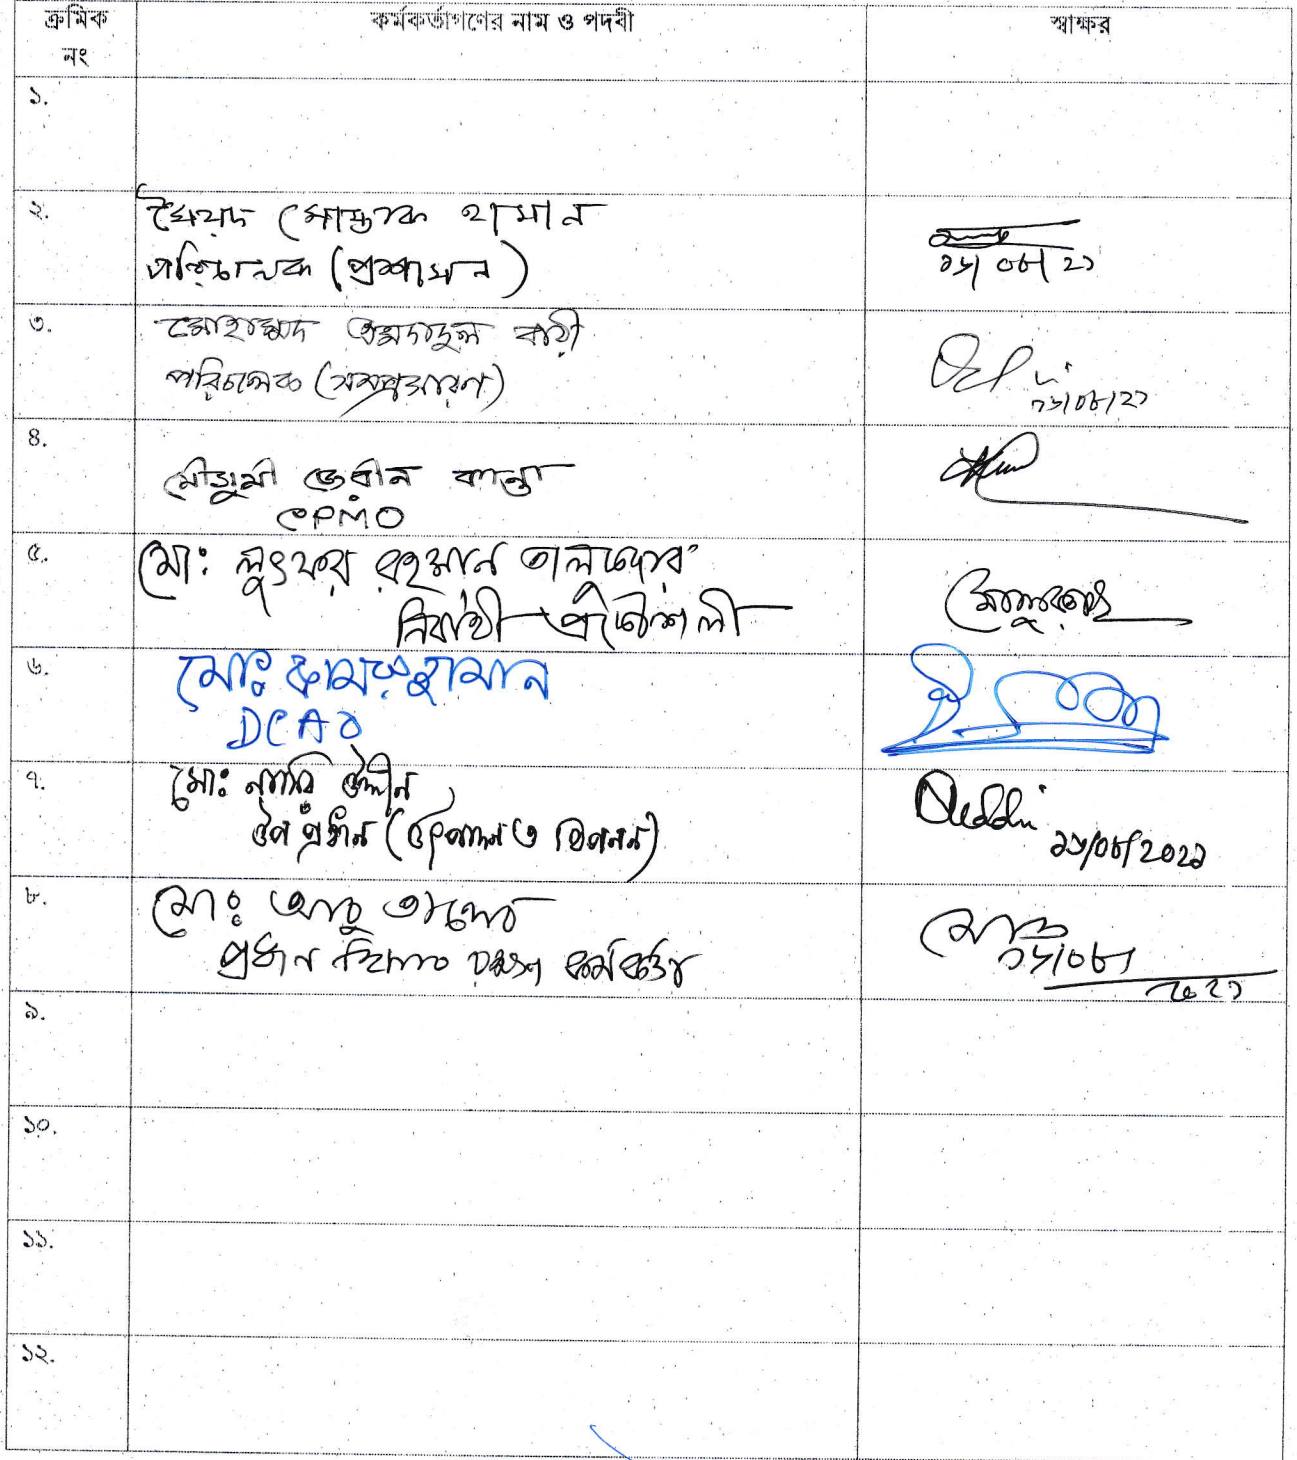 ক্রমিক নং কর্মকর্তাগণের নাম ও পদবী স্বাক্ষর
১.
২. সৈয়দ মোস্তাক হাসান
পরিচালক (প্রশাসন)
১৬/০৮/২১
৩. মোহাম্মদ এমদাদুল বারী
পরিচালক (সম্প্রসারণ)
১৬/০৮/২১
৪. মৌসুমী জেরীন কান্তা
CPMO
৫. মো: লুৎফর রহমান তালুকদার
নির্বাহী প্রকৌশলী
৬. মোঃ কামরুজ্জামান
DCAO
৭. মো: উদ্দীন
উপ প্রধান (উৎপাদন ও বিপনন)
১৬/০৮/২০২১
৮. মোঃ আবু তাহের
প্রধান হিসাব রক্ষণ কর্মকর্তা
১৬/০৮/
২০২১
৯.
১০.
১১.
১২.